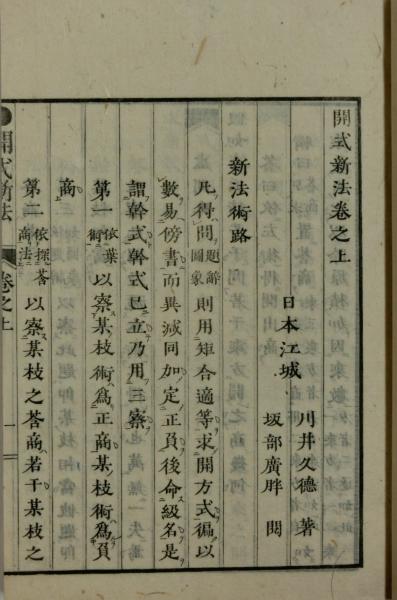 開式新法卷之上
日本江城 川井久德 著
坂部廣胖 閲
新法術路
凡得問題辭圖象則用矩合適等求開方式徧以
數易傍書而異減同加定正負後命級名是
謂幹式幹式已立乃用三察
第一依葉術以察某枝術爲正商某枝術爲負
商
第二依探荅商法以察某枝之荅商若干某枝之
開式新法 卷之上 一